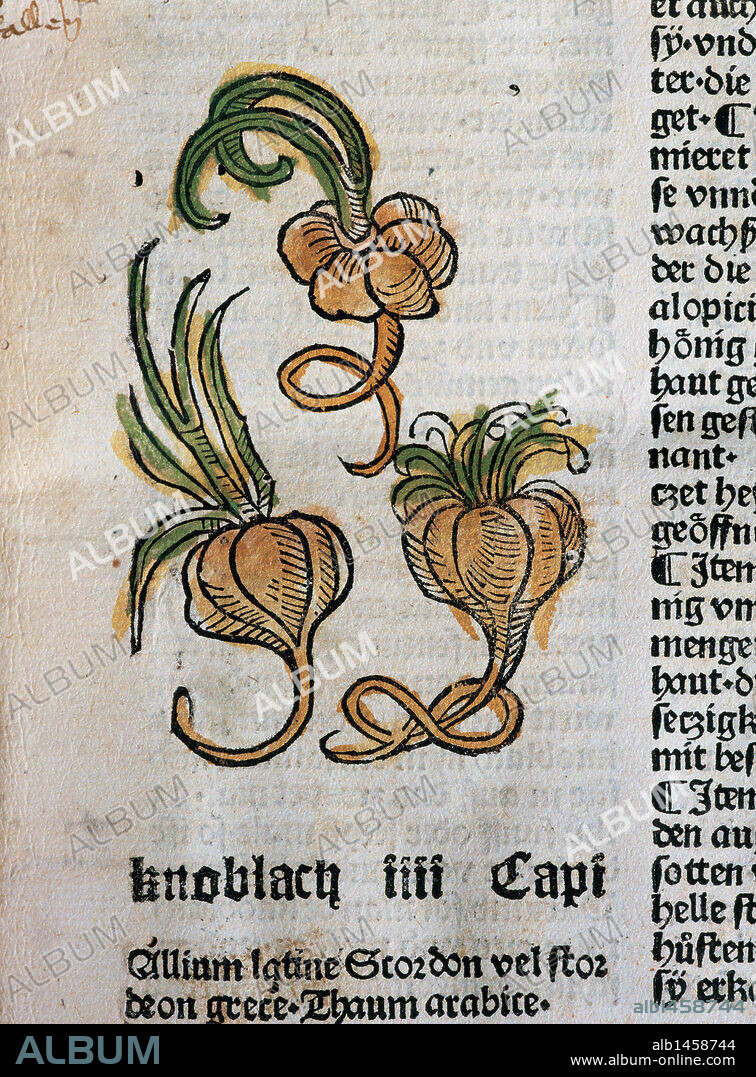 alley
knoblach iiii Capi
Allium latine Scordon vel scor
deon grece. Thaum arabice.
et auch
sÿ.vnd
ter.die
get. ¶
mieret
se vnnd
wachs
der die
alopici
hönig
haut ge
sen gest
nant.
czet he
geöffn
¶ Item
nig vn
menge
haut.d
seczigk
mit bes
¶ Item
den au
sotten
helle st
hůsten
sÿ erk
alb1458744
ALBUM
alb1458744
www.album-online.com